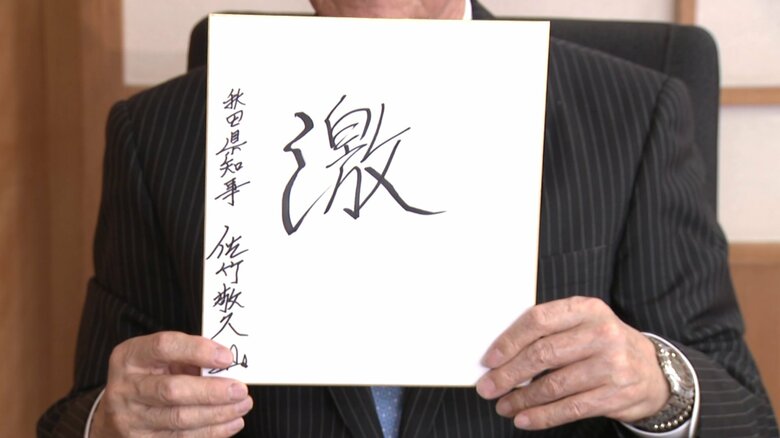 激
秋田県知事 佐竹敬久